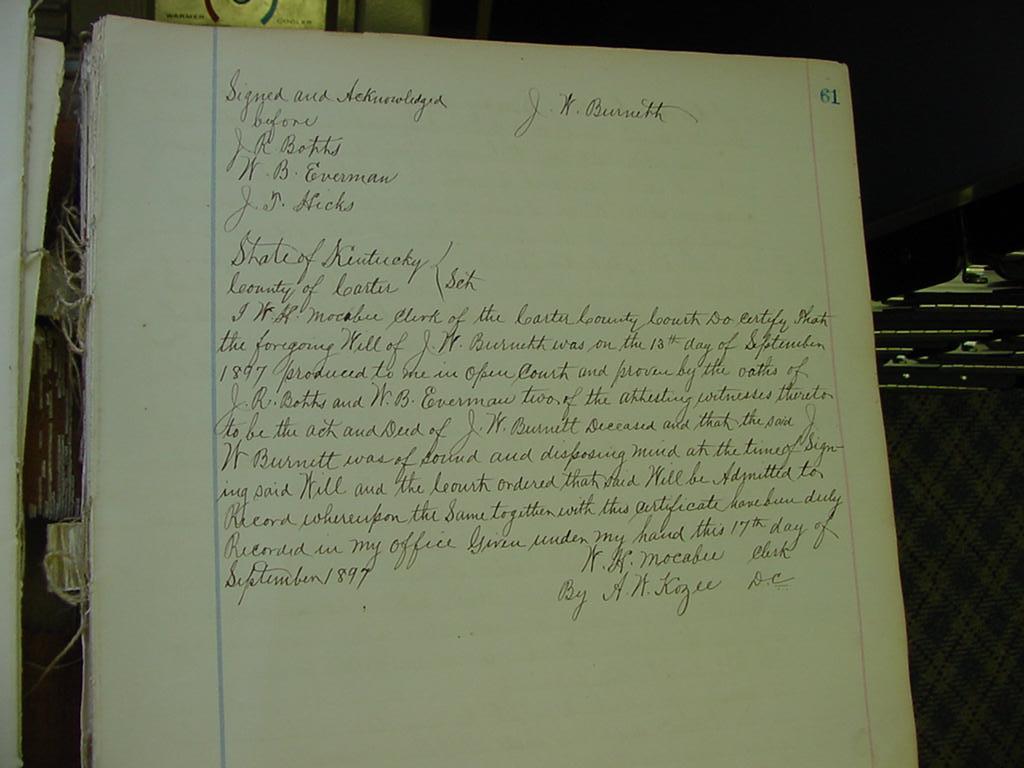 WARMER COOLER
61
Signed and Acknowledged J. W. Burnett
before
J R Botts
W. B. Everman
J. T. Hicks
State of Kentucky
County of Carter ( Sct
I W. H. Mocabee Clerk of the Carter County Court Do certify that
the foregoing Will of J. W. Burnett was on the 13th day of September
1897 produced to me in open Court and proven by the oaths of
J. R. Botts and W. B. Everman two of the attesting witnesses thereto
to be the act and Deed of J. W. Burnett Deceased and that the said J.
W Burnett was of sound and disposing mind at the time of Sign-
ing said Will and the Court ordered that said Will be Admitted to
Record whereupon the Same together with this certificate have been duly
Recorded in my office Given under my hand this 17th day of
September 1897 W. H. Mocabee Clerk
By A. W. Kozee D.C